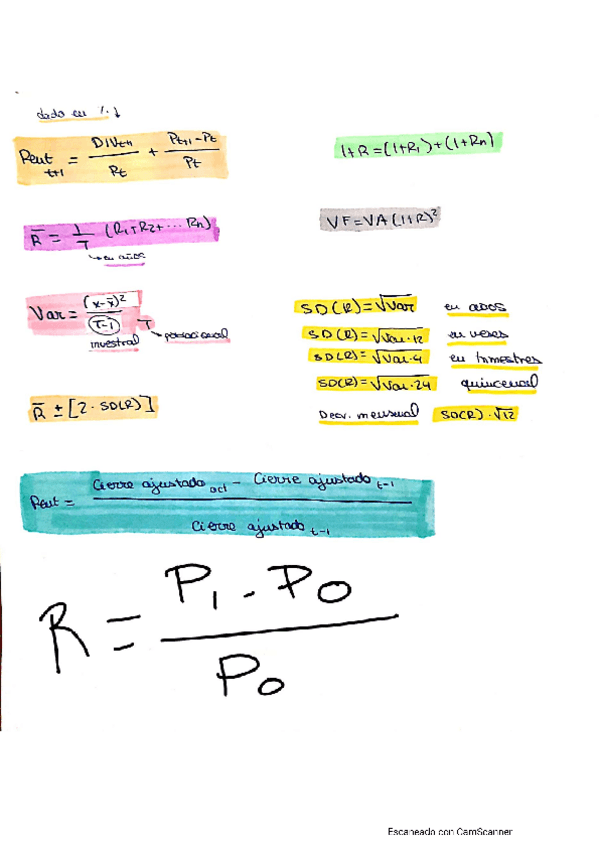 dado en %↓
Rent t+1 = DIVt+1 / Pt + Pt+1 - Pt / Pt
1+R = (1+R1) + (1+Rn)
R̄ = 1/T (R1+R2+...Rn)
→ en años
VF = VA (1+R)²
Var = (x-x̄)² / T-1
T → poblacional
muestral
SD(R) = √Var en años
SD(R) = √Var·12 en meses
SD(R) = √Var·4 en trimestres
SD(R) = √Var·24 quincenal
R̄ ± [2·SD(R)]
Desv. mensual SD(R)·√12
Rent = Cierre ajustado act - Cierre ajustado t-1 / Cierre ajustado t-1
R = P1 - P0 / P0
Escaneado con CamScanner